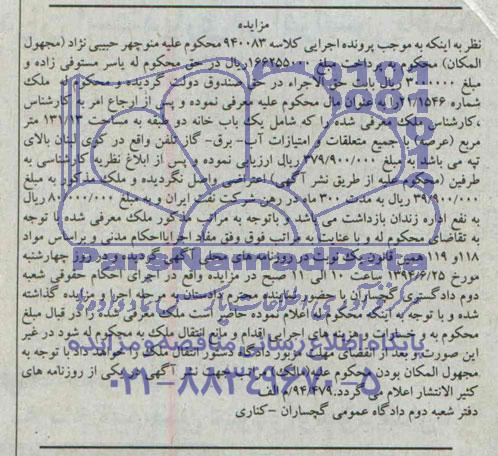 مزایده
نظر به اینکه به موجب پرونده اجرایی کلاسه ۹۴۰۰۸۳ محکوم علیه منوچهر حبیبی نژاد (مجهول
المکان) محکوم به پرداخت مبلغ ۱۶۶۲۵۵۰۰۰ ریال در حق محکوم له یاسر مستوفی زاده و
مبلغ ۳۰۰۰۰۰۰ ریال بابت حق الاجراء در حق صندوق دولت گردیده و محکوم له ملک
شماره ۲۱/۱۵۴۶ را به عنوان مال محکوم علیه معرفی نموده و پس از ارجاع امر به کارشناس
،کارشناس ملک معرفی شده را که شامل یک باب خانه دو طبقه به مساحت ۱۳۱/۱۳ متر
مربع (عرصه) با جمیع متعلقات و امتیازات آب- برق- گاز تلفن واقع در کوی لبنان بالای
تپه می باشد به مبلغ ۳۷۹/۹۰۰/۰۰۰ ریال ارزیابی نموده و پس از ابلاغ نظریه کارشناسی به
طرفین (محکوم علیه از طریق نشر آگهی) اعتراضی واصل نگردیده و ملک مذکور به مبلغ
۳۹/۹۰۰/۰۰۰ ریال به مدت ۳۰۰ ماه در رهن شرکت نفت ایران و به مبلغ ۸۰/۰۰۰/۰۰۰ ریال
به نفع اداره زندان بازداشت می باشد و باتوجه به مراتب مذکور ملک معرفی شده با توجه
به تقاضای محکوم له و با عنایت به مراتب فوق وفق مفاد اجرااحکام مدنی و براساس مواد
۱۱۸و ۱۱۹ همین قانون یک نوبت در روزنامه های محلی آگهی گردیده و در روز چهارشنبه
مورخ ۱۳۹۴/۶/۲۵ ساعت ۱۰ الی ۱۱ صبح در مزایده واقع در اجرای احکام حقوقی شعبه
دوم دادگستری گچساران با حضور نماینده محترم دادستان به مرحله اجرا و مزایده گذاشته
شده و با توجه به اینکه محکوم له اعلام نموده حاضر است ملک معرفی شده را در قبال مبلغ
محکوم به و خسارات وهزینه های اجرایی اقدام و مانع انتقال ملک به محکوم له شود در غیر
این صورت و بعد از انقضای مهلت مزبور دادگاه دستور انتقال ملک را خواهد داد با توجه به
مجهول المکان بودن محکوم علیه(مالک) مراتب جهت نشر آگهی در یکی از روزنامه های
کثیر الانتشار اعلام می گردد.۹۴/۴۷۹/م الف
دفتر شعبه دوم دادگاه عمومی گچساران -کناری
ParsNamadData
پایگاه اطلاع رسانی مناقصه و مزایده
۰۲۱-۸۸۳۴۹۶۷۰-۵